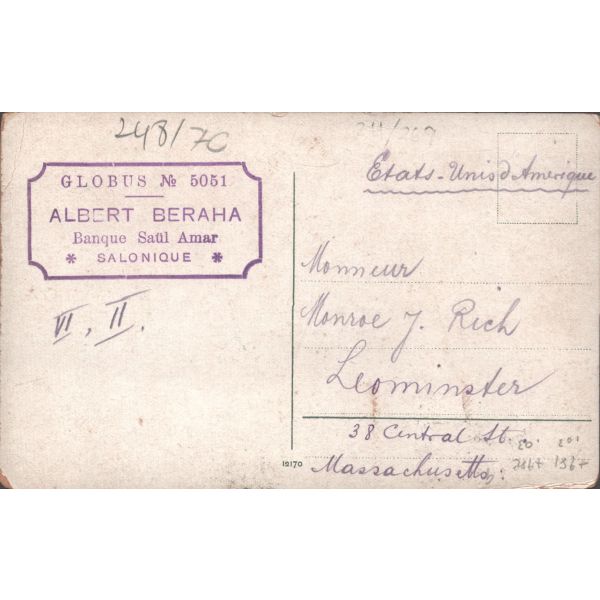 248/70
GLOBUS № 5051
ALBERT BERAHA
Banque Saül Amar
* SALONIQUE *
VI, II.
Etats-Unis d'Amerique
Monsieur
Monroe J. Rich
Leominster
38 Central St.
Massachusetts.
12170